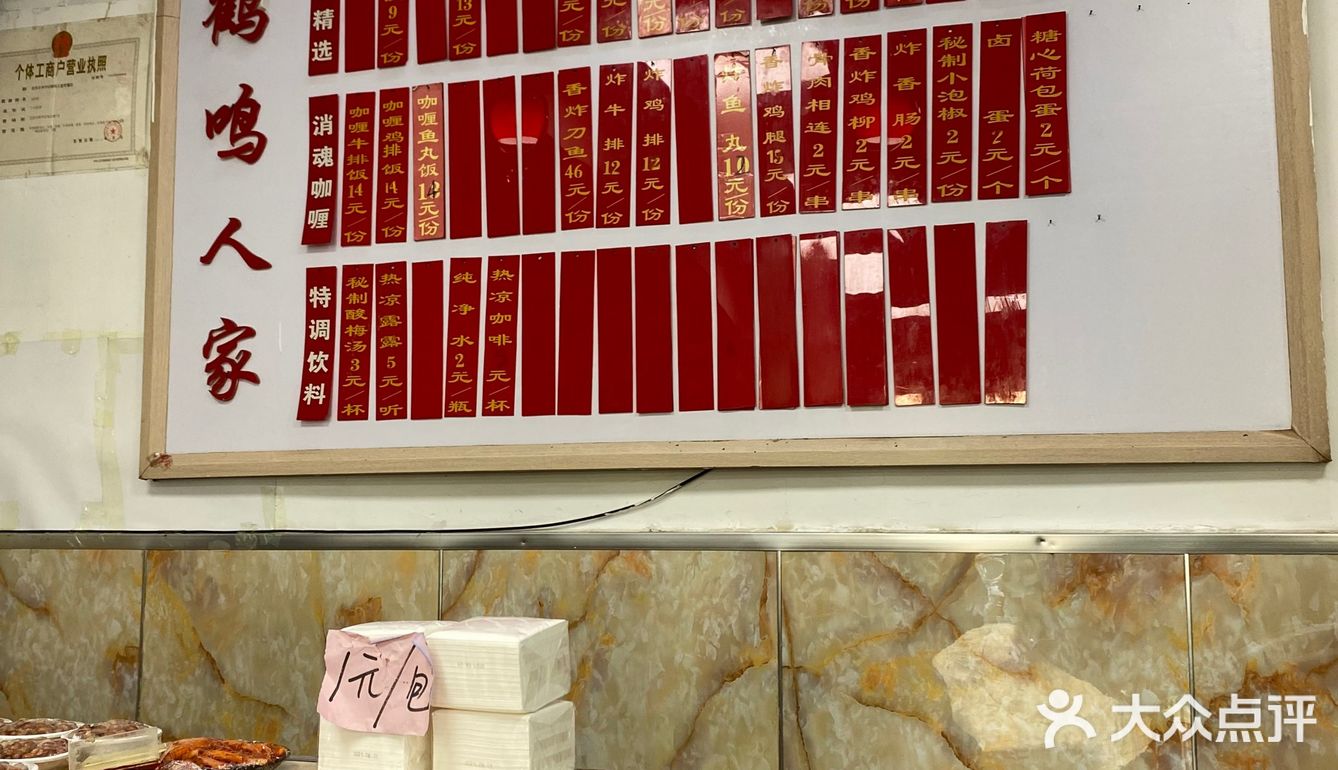 鹤鸣人家
精选
9元/份
13元/份
元/份
元/份
元/份
元/份
消魂咖喱
咖喱牛排饭14元/份
咖喱鸡排饭14元/份
咖喱鱼丸饭18元/份
香炸刀鱼46元/份
炸牛排12元/份
炸鸡排12元/份
炸鱼丸10元/份
香炸鸡腿15元/份
骨肉相连2元/串
香炸鸡柳2元/串
炸香肠2元/串
秘制小泡椒2元/份
卤蛋2元/个
糖心荷包蛋2元/个
特调饮料
秘制酸梅汤3元/杯
热凉露露5元/听
纯净水2元/瓶
热凉咖啡 元/杯
个体工商户营业执照
1元/包
大众点评